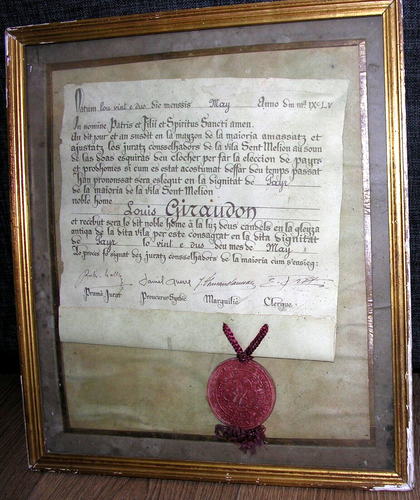 Datum lou vint e duo die mensis May Anno Dm IXcLV
In nomine Patris et Filii et Spiritus Sancti amen.
Au dit jour et an susdit en la mayzon de la maioria amassatz et
ajustatz los juratz cossselhadors de la vila Sent Melion au soun
de las doas esquiras deu clocher per far la eleccion de payrs
et prodhomes si cum es estat acostumat deffar deu temps passat
Han prononssat sera eslegut en la dignitat de Payr
de la maioria de la vila Sent Melion
noble home
Louis Giraudon
et recebut sera lo dit noble home à la luz deus candels en la gleyza
antiga de la dita vila per este consagrat en la dita dignitat
de Payr lo vint e duo deu mes de May
Lo procès fo signat dez juratz cossselhadors de la maioria cum s'ensieg:
Prumé Jurat Procurur Syndic Marguilié Clergue